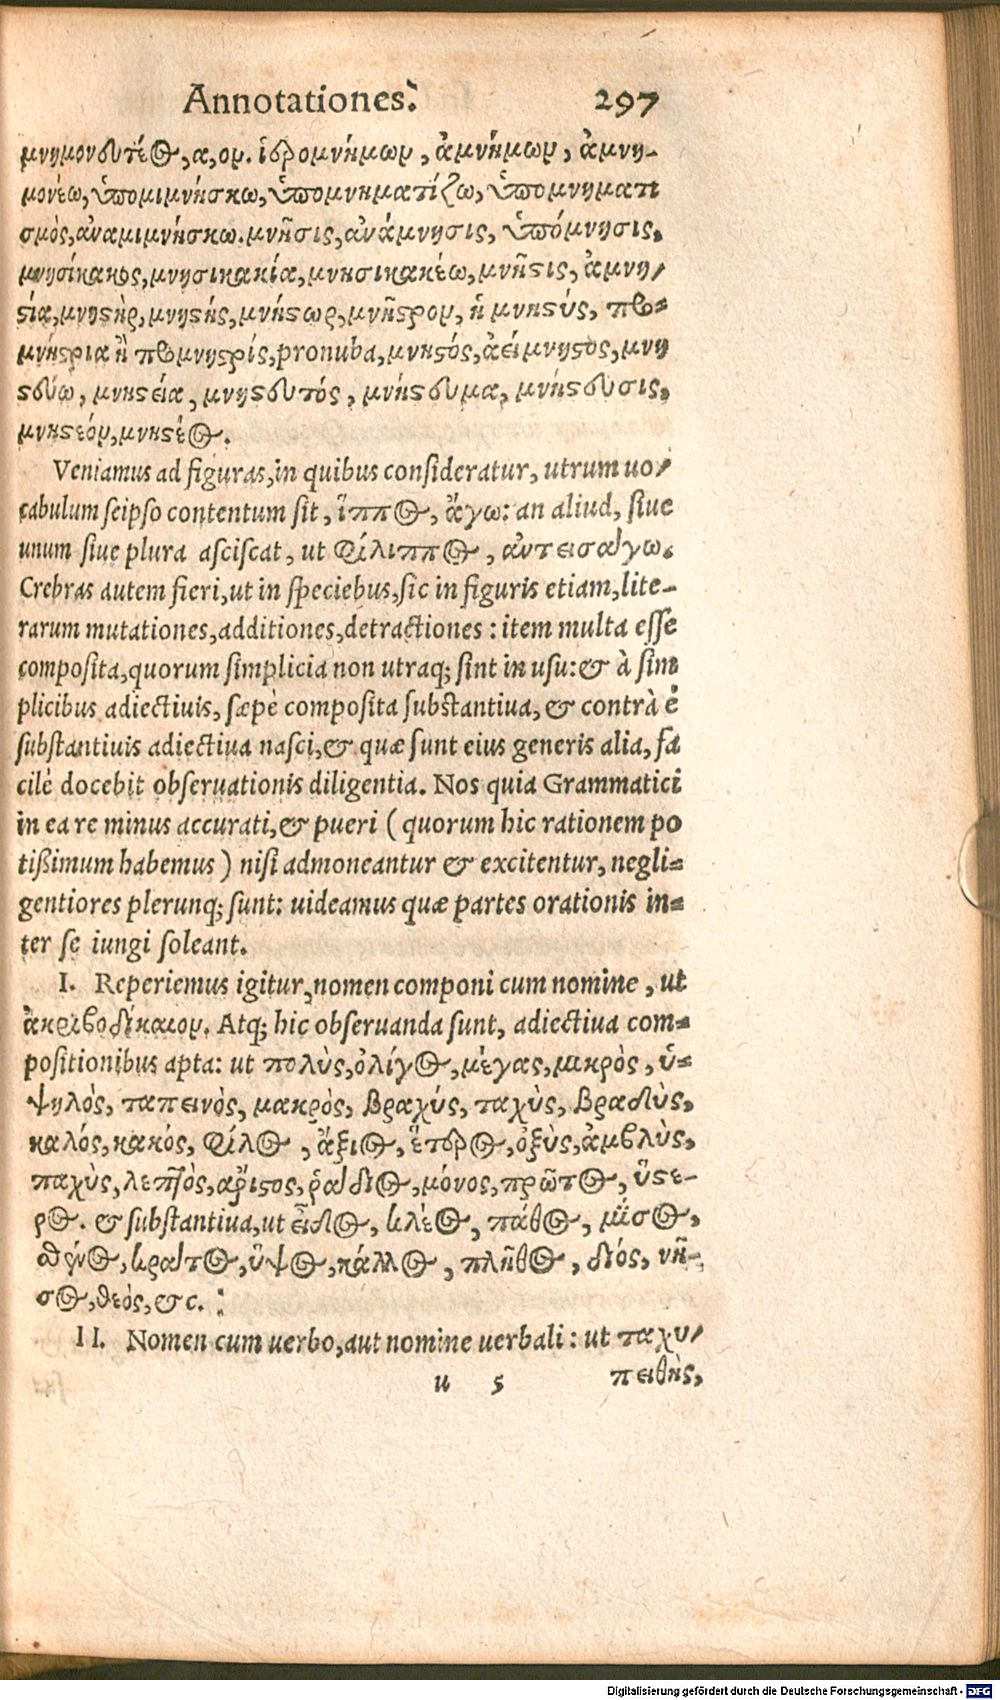 Annotationes. 297
μνημονευτέος, α, ον. ἱερομνήμων, ἀμνήμων, ἀμνη-
μονέω, ὑπομιμνήσκω, ὑπομνηματίζω, ὑπομνηματι
σμὸς, ἀναμιμνήσκω. μνῆσις, ἀνάμνησις, ὑπόμνησις,
μνησίκακος, μνησικακία, μνησικακέω, μνῆστις, ἀμνη/
στία, μνηστὴρ, μνηστής, μνήστωρ, μνῆστρον, ἡ μνηστύς, προ=
μνήστρια ἢ προμνηστρίς, pronuba, μνηστός, ἀείμνηστος, μνη
στεύω, μνηστεία, μνηστευτός, μνήστευμα, μνήστευσις,
μνηστέον, μνηστέος.
Veniamus ad figuras, in quibus consideratur, utrum uo/
cabulum seipso contentum sit, ἵππος, ἄγω: an aliud, siue
unum siue plura asciscat, ut Φίλιππος, ἀντεισάγω.
Crebras autem fieri, ut in speciebus, sic in figuris etiam, lite-
rarum mutationes, additiones, detractiones : item multa esse
composita, quorum simplicia non utraq; sint in usu: & à sim
plicibus adiectiuis, sæpè composita substantiua, & contrà è
substantiuis adiectiua nasci, & quæ sunt eius generis alia, fa
cilè docebit obseruationis diligentia. Nos quia Grammatici
in ea re minus accurati, & pueri ( quorum hic rationem po
tißimum habemus ) nisi admoneantur & excitentur, negli=
gentiores plerunq; sunt: uideamus quæ partes orationis in=
ter se iungi soleant.
I. Reperiemus igitur, nomen componi cum nomine, ut
ἀκριβοδίκαιον. Atq; hic obseruanda sunt, adiectiua com=
positionibus apta: ut πολὺς, ὀλίγος, μέγας, μικρὸς, ὑ=
ψηλὸς, ταπεινὸς, μακρὸς, βραχύς, ταχὺς, βραδὺς,
καλός, κακός, φίλος, ἄξιος, ἕτερος, ὀξὺς, ἀμβλὺς,
παχὺς, λεπτὸς, ἄριστος, ῥᾴδιος, μόνος, πρῶτος, ὕστε-
ρος. & substantiua, ut εἶδος, κλέος, πάθος, μῖσος,
σθένος, κράτος, ὕψος, κάλλος, πλῆθος, διός, νῆ-
σος, θεὸς, &c.
II. Nomen cum uerbo, aut nomine uerbali : ut ταχυ/
u 5 πειθὴς,
Digitalisierung gefördert durch die Deutsche Forschungsgemeinschaft - DFG